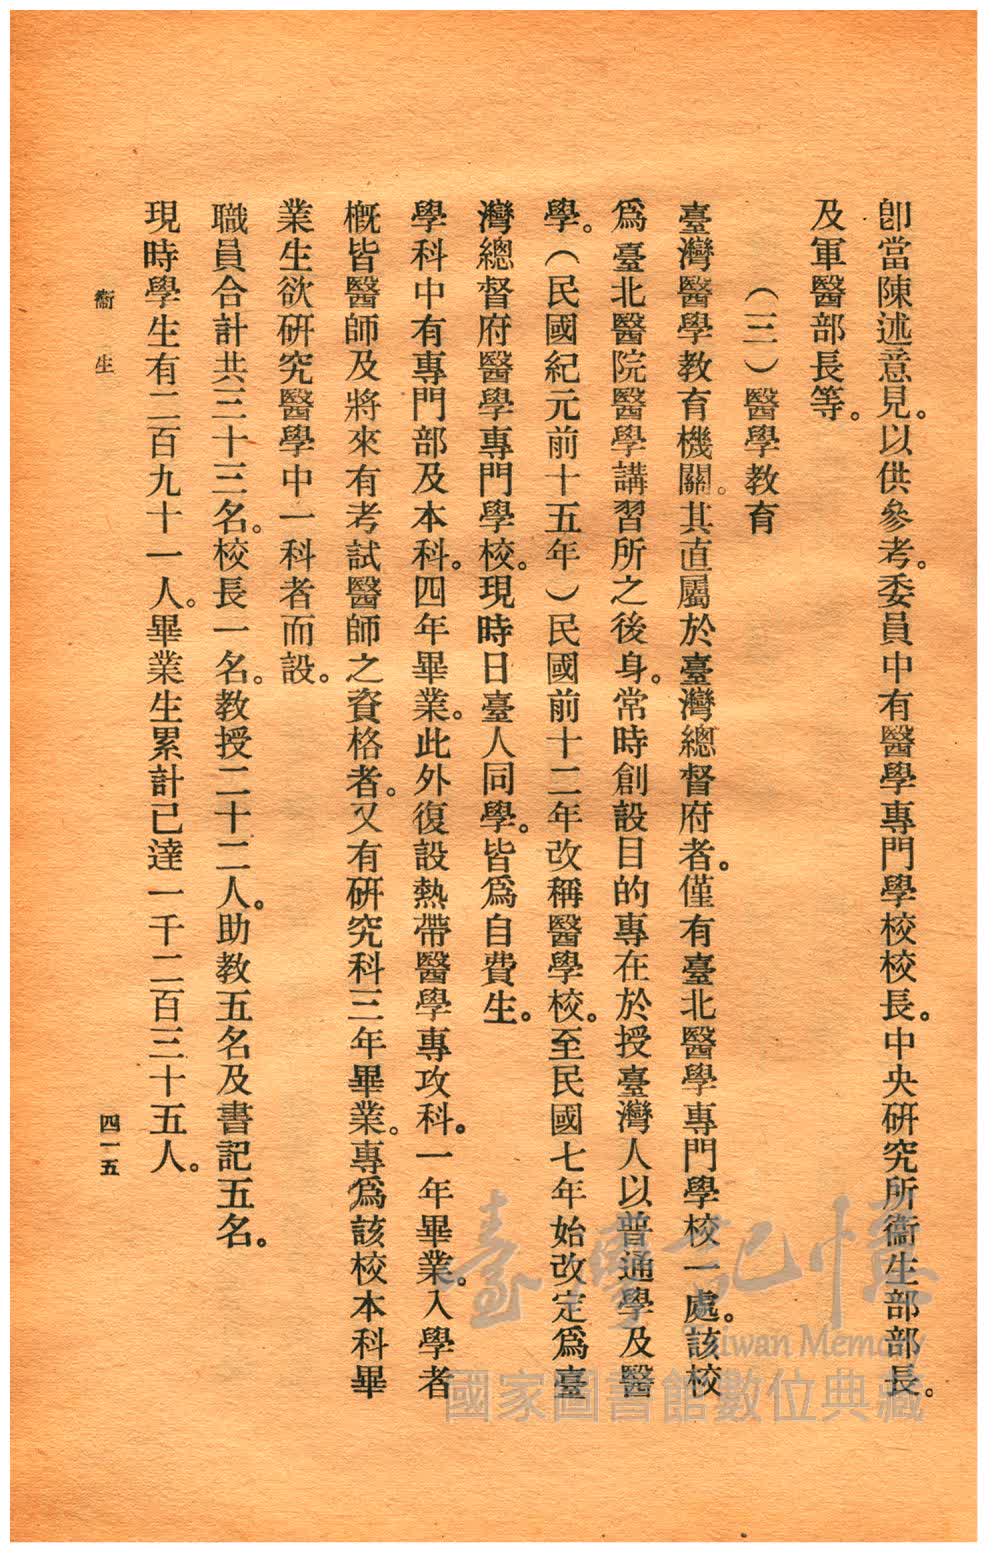 卽當陳述意見。以供參考。委員中有醫學專門學校校長。中央研究所衞生部部長。
及軍醫部長等。
（三）醫學教育
臺灣醫學教育機關。其直屬於臺灣總督府者。僅有臺北醫學專門學校一處。該校
爲臺北醫院醫學講習所之後身。常時創設目的專在於授臺灣人以普通學及醫
學。（民國紀元前十五年）民國前十二年改稱醫學校。至民國七年始改定爲臺
灣總督府醫學專門學校。現時日臺人同學。皆爲自費生。
學科中有專門部及本科。四年畢業。此外復設熱帶醫學專攻科。一年畢業。入學者
槪皆醫師及將來有考試醫師之資格者。又有研究科三年畢業。專爲該校本科畢
業生欲研究醫學中一科者而設。
職員合計共三十三名。校長一名。教授二十二人。助教五名及書記五名。
現時學生有二百九十一人。畢業生累計已達一千二百三十五人。
衞生
四一五
臺灣記憶
Taiwan Memory
國家圖書館數位典藏